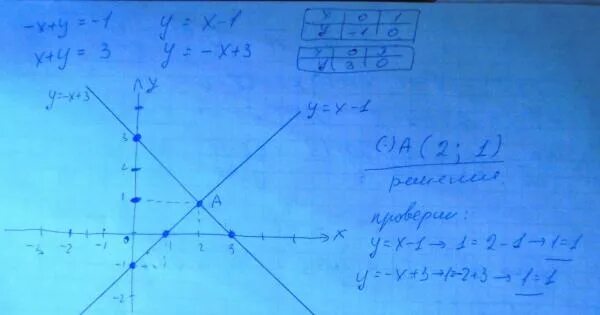 -x+y=-1 y=x-1
x+y=3 y=-x+3
x 0 1
y -1 0
x 0 3
y 3 0
y=-x+3
y
y=x-1
3
2
1
A
-3 -2 -1 0 1 2 3 x
-1
-2
(·)A(2; 1)
решения
проверим:
y=x-1→1=2-1→1=1
y=-x+3→1=-2+3→1=1